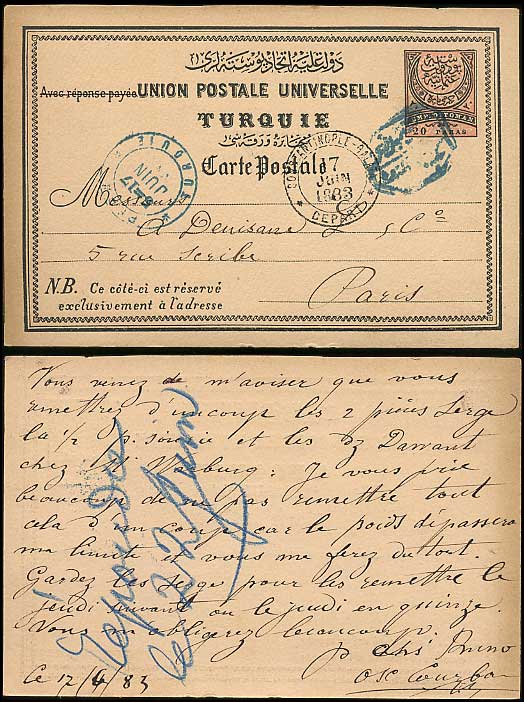 دولت عليه اتحاد پوسته لرى
Avec réponse payée UNION POSTALE UNIVERSELLE
TURQUIE
20 PARAS
Carte Postale
CONSTANTINOPLE
17
JUIN
1883
DEPART
JUIN
TURQUIE
Messieurs
A Denisane & Cº
5 rue Scribe
Paris
N.B. Ce côté-ci est réservé
exclusivement à l'adresse
Vous venez de m'aviser que vous
remettrez d'un coup les 2 pièces Serge
la 1/2 et les
chez Warburg: Je vous prie
beaucoup de ne pas remettre tout
cela d'un coup car le poids dépassera
ma limite et vous me ferez du tort.
Gardez les Serges pour les remettre le
jeudi suivant ou le jeudi en quinze.
Vous m'obligerez beaucoup.
Ce 17/6/83
Répondue
le 23 Juin